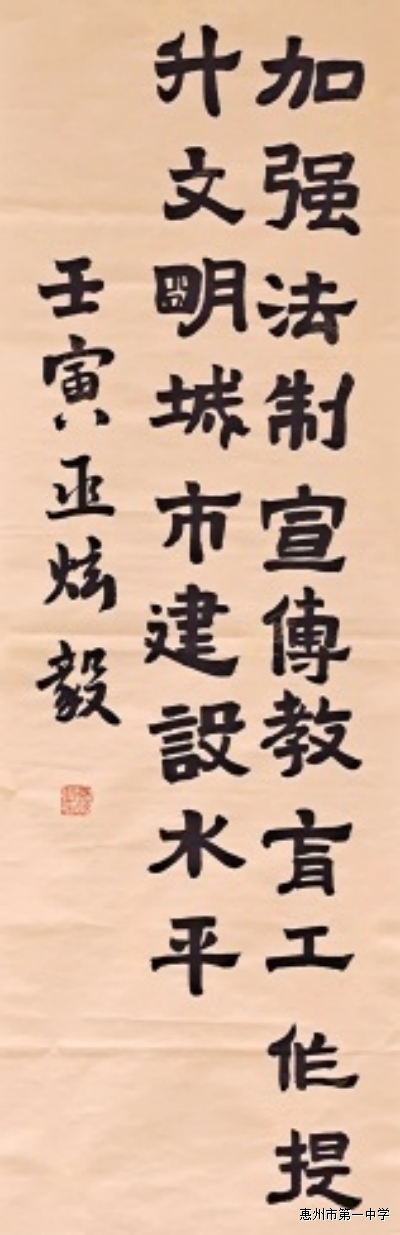 加强法制宣傳教育工作提
升文明城市建設水平
壬寅巫炫毅
惠州市第一中学